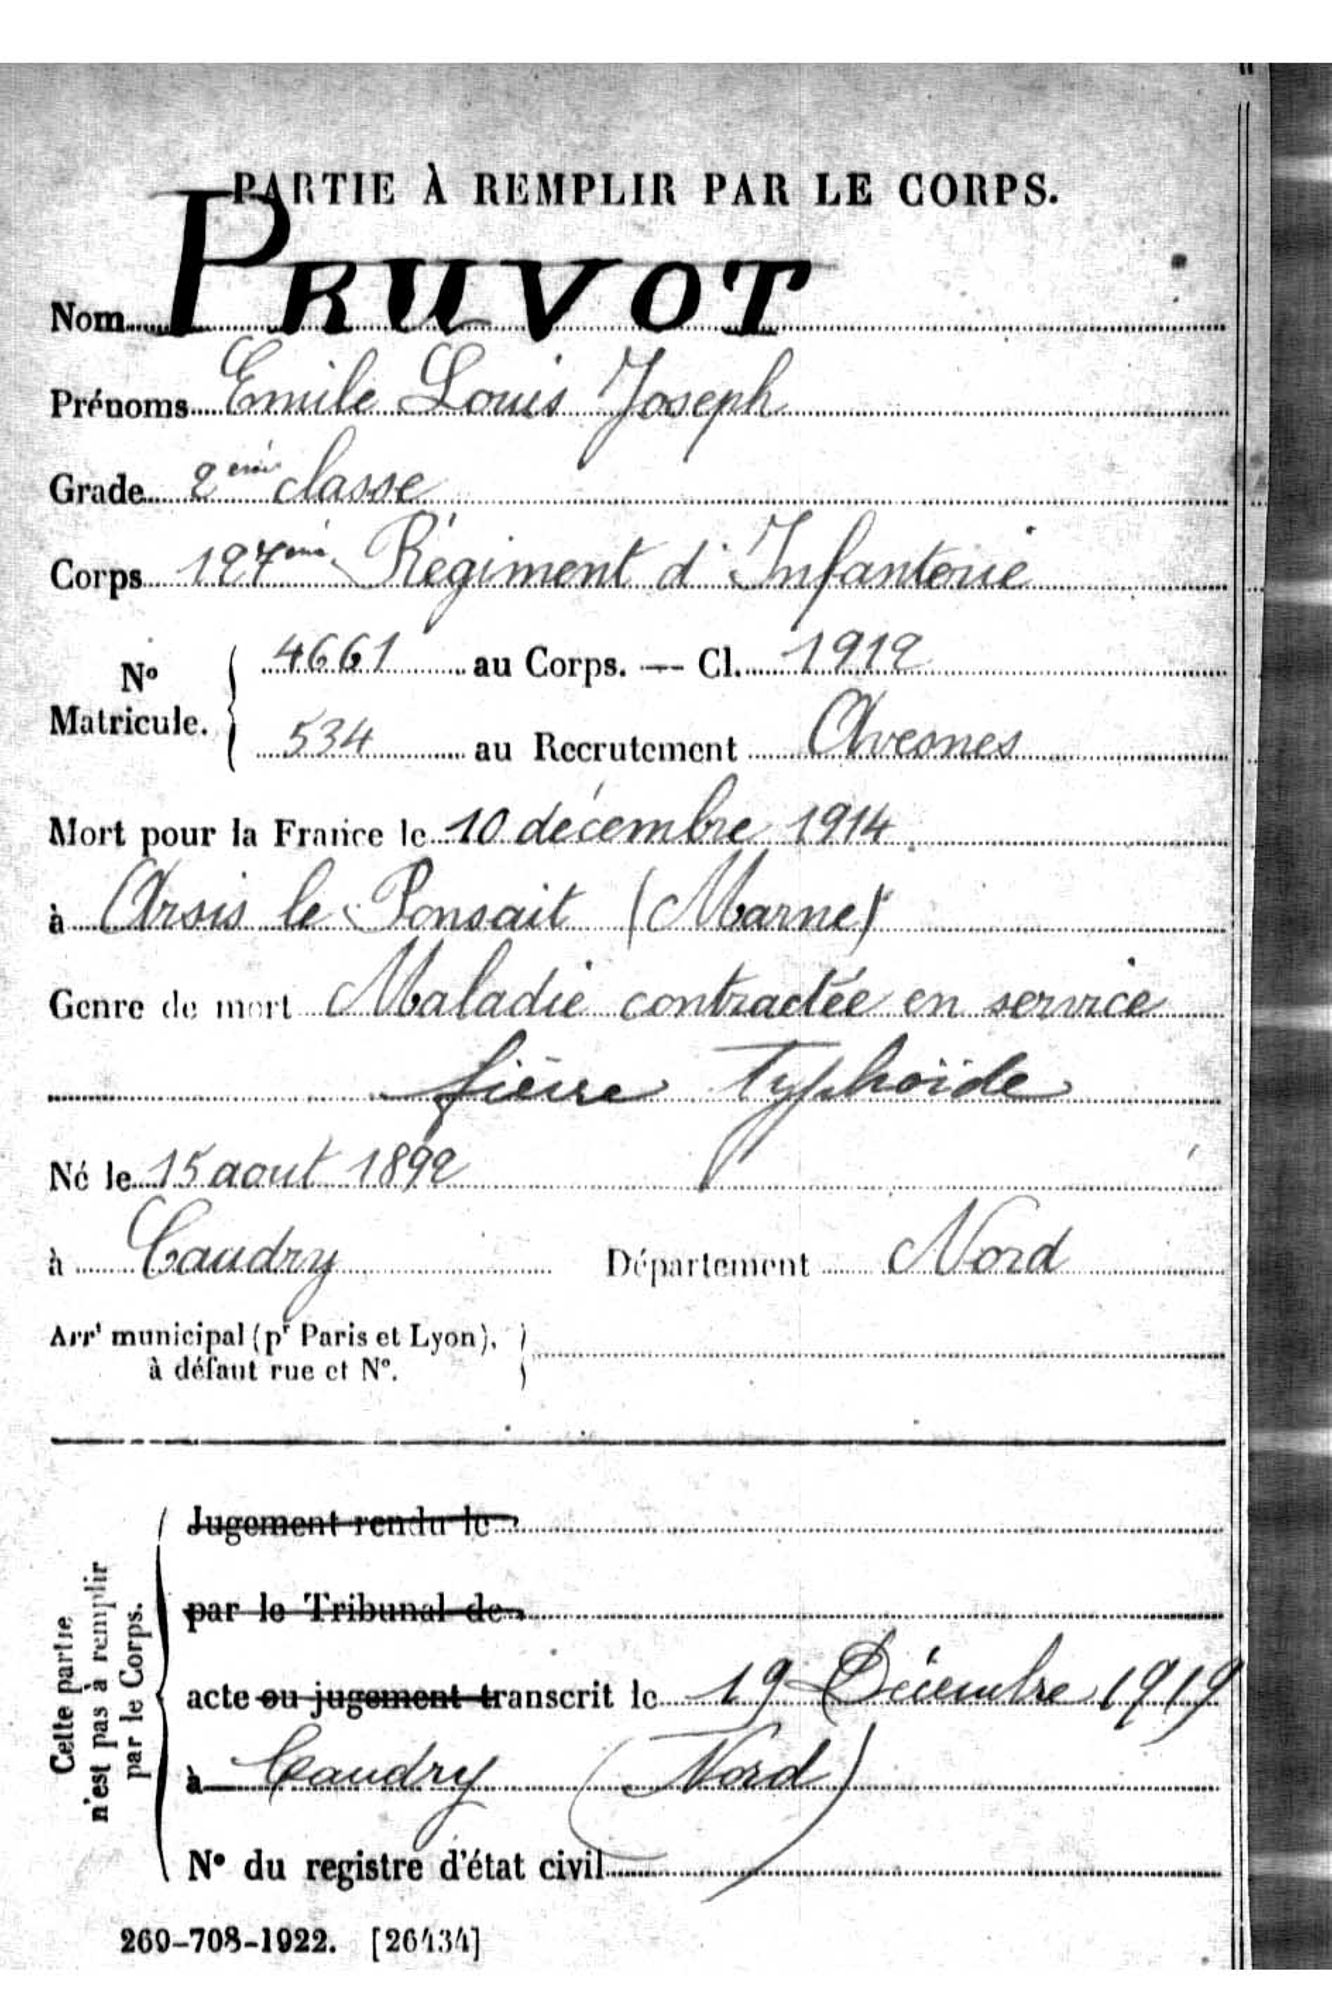 PARTIE À REMPLIR PAR LE CORPS.
Nom PRUVOT
Prénoms Emile Louis Joseph
Grade 2ème classe
Corps 127ème Régiment d'Infanterie
No Matricule. 4661 au Corps. — Cl. 1912
534 au Recrutement Avesnes
Mort pour la France le 10 décembre 1914
à Arsis le Ponsait (Marne)
Genre de mort Maladie contractée en service
fièvre Typhoïde
Né le 15 aout 1892
à Caudry Département Nord
Arrt municipal (pr Paris et Lyon),
à défaut rue et No.
Cette partie
n'est pas à remplir
par le Corps.
Jugement rendu le
par le Tribunal de
acte ou jugement transcrit le 19 Décembre 1919
à Caudry (Nord)
No du registre d'état civil
269-708-1922. [26434]